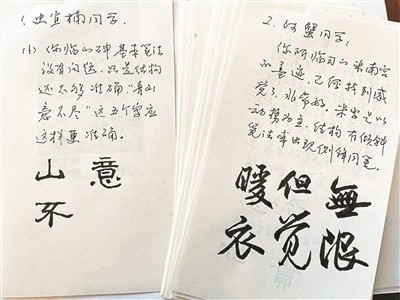 1. 史宜楠同学:
(1) 你临山碑基本笔法
没有问题,只是结构
还不够准确,“青山
意不尽”这五个字应
这样更准确。
山 意
不
2. 何蟹同学:
你所临习米南宫
墨迹,已经找到感
觉了,非常好。米字是以
动势为主,结构有倾斜
笔法常出现侧锋用笔。
暖但無
衣觉限